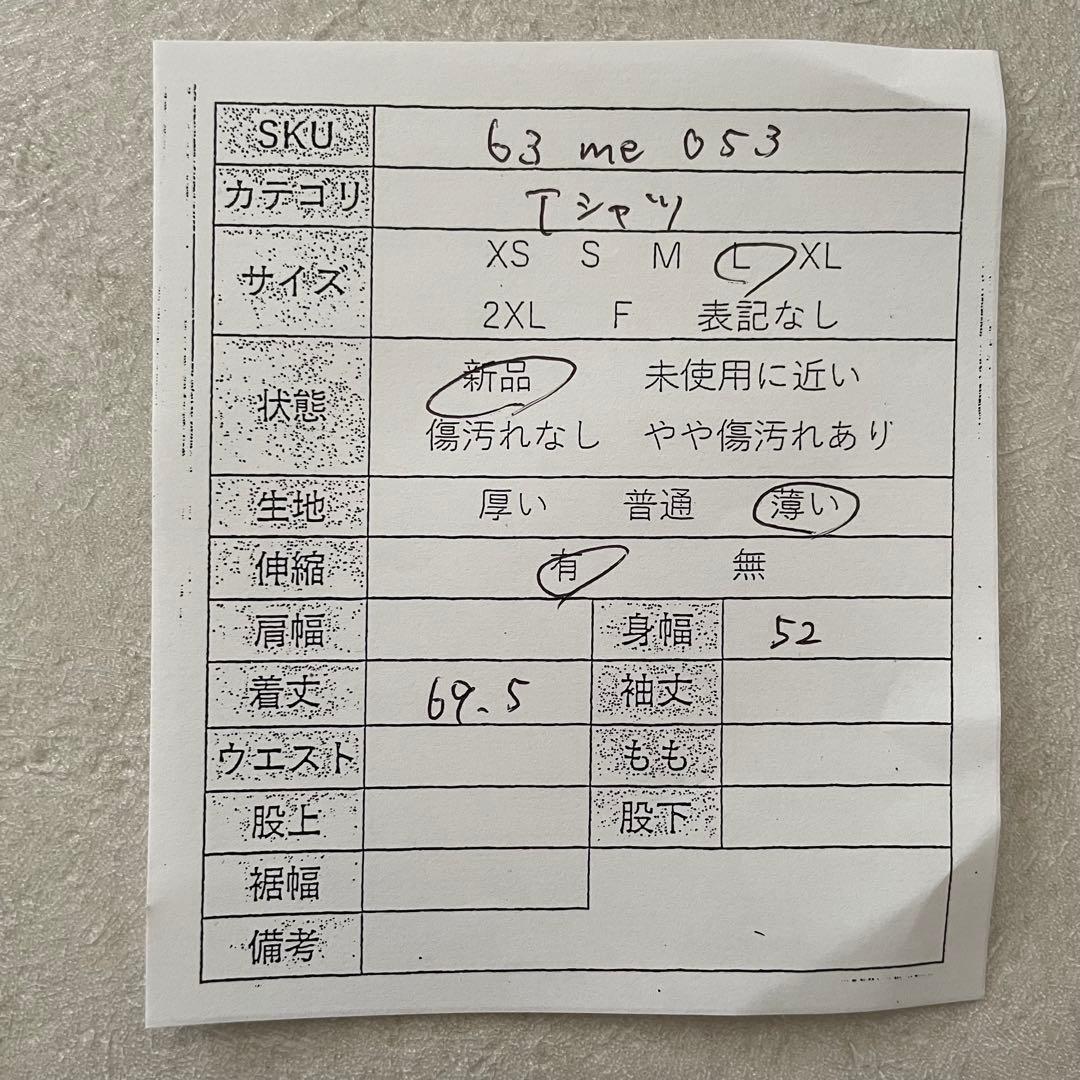 SKU 63 me 053
カテゴリ Tシャツ
サイズ XS S M L XL
2XL F 表記なし
状態 新品 未使用に近い
傷汚れなし やや傷汚れあり
生地 厚い 普通 薄い
伸縮 有 無
肩幅 身幅 52
着丈 69.5 袖丈
ウエスト もも
股上 股下
裾幅
備考